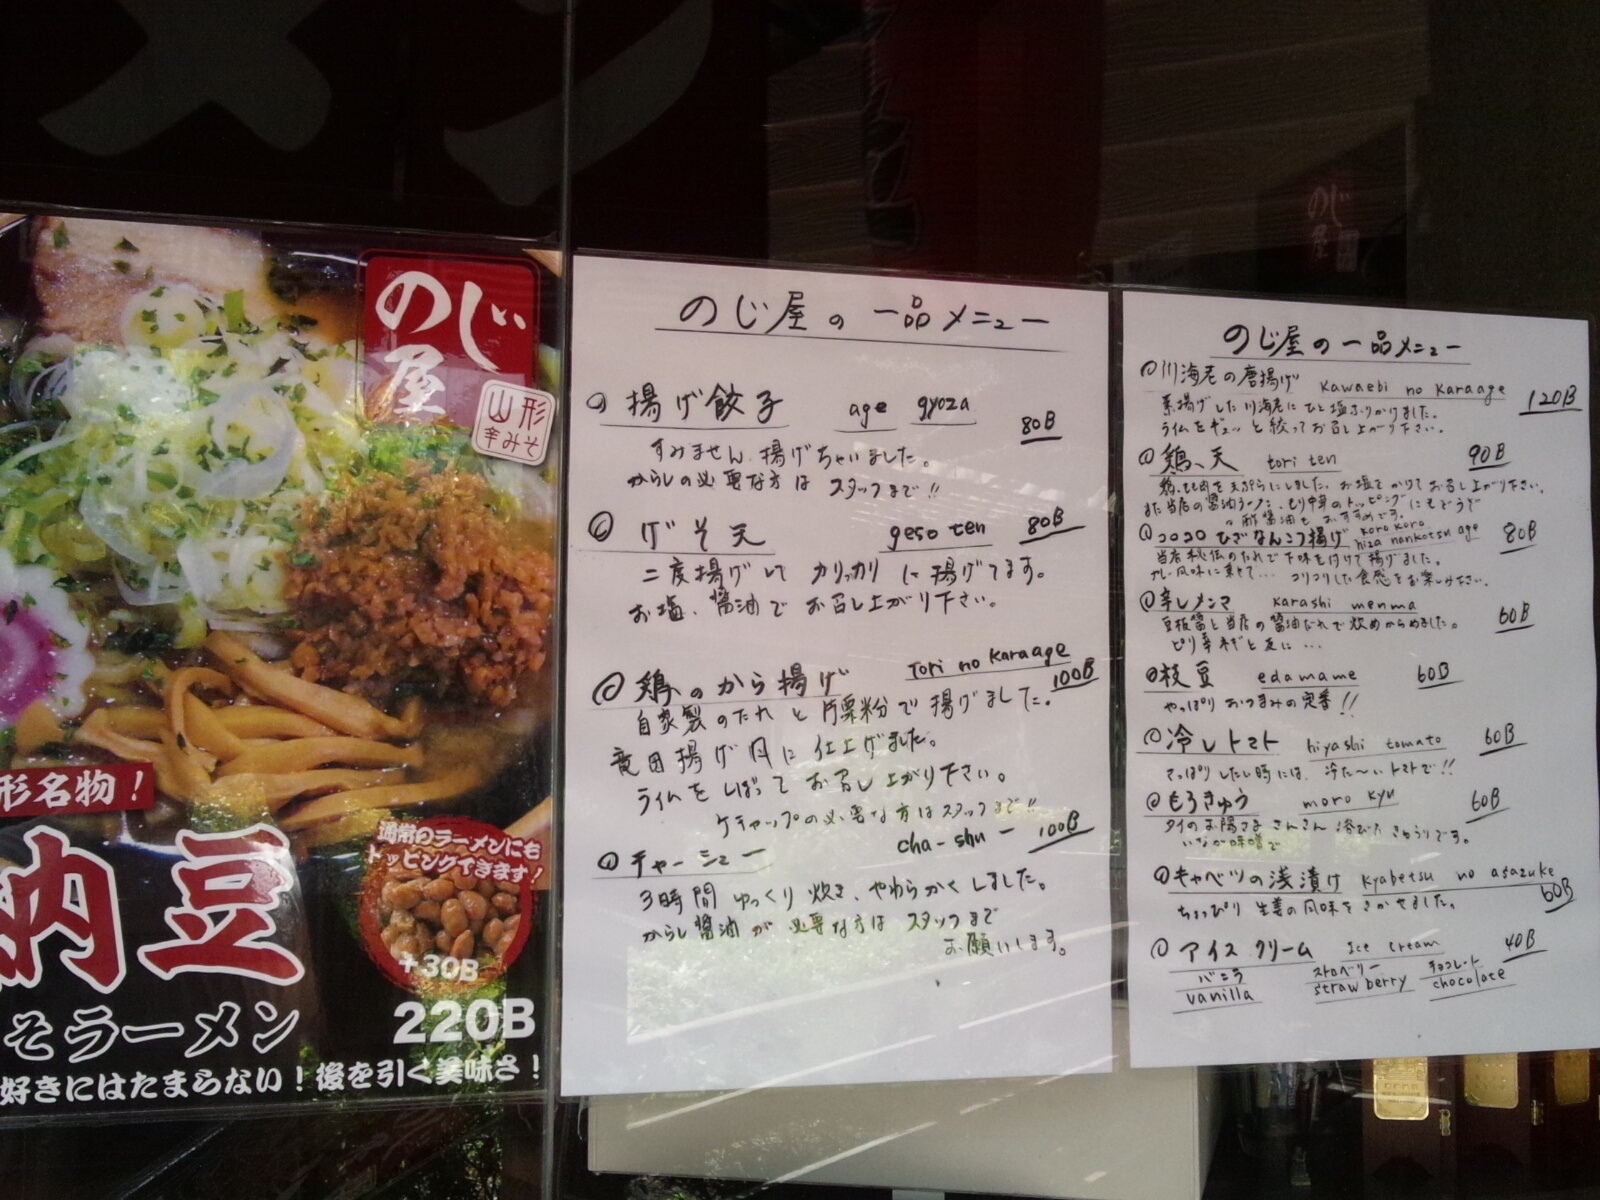 のじ屋
山形
辛みそ
形名物！
納豆
通常のラーメンにも
トッピングできます！
+30B
220B
そラーメン
好きにはたまらない！後を引く美味さ！
のじ屋の一品メニュー
揚げ餃子 age gyoza 80B
すみません、揚げちゃいました。
からしの必要な方は スタッフまで!!
げそ天 geso ten 80B
二度揚げして カリッカリ に揚げてます。
お塩、醤油で お召し上がり下さい。
鶏のから揚げ Tori no Karaage 100B
自家製のたれ と 片栗粉で 揚げました。
竜田揚げ風に 仕上げました。
ライムを しぼって お召し上がり下さい。
ケチャップの必要な方はスタッフまで!!
チャーシュー cha-shu- 100B
3時間 ゆっくり 炊き、やわらかくしました。
からし醤油が 必要な方は スタッフまで
お願いします。
のじ屋の一品メニュー
川海老の唐揚げ Kawaebi no Karaage 120B
素揚げした川海老にひと塩ふりかけました。
ライムをギュッと絞ってお召し上がり下さい。
鶏天 tori ten 90B
鶏もも肉を天ぷらにしました。お塩をかけてお召し上がり下さい。
また当店の醤油ラーメン、もり中華のトッピングにもどうぞ
酢醤油もおすすめです。
コロコロひざなんこつ揚げ koro koro hiza nankotsu age 80B
当店秘伝のたれで下味を付けて揚げました。
カレー風味に乗せて… コリコリした食感をお楽しみ下さい。
辛しメンマ karashi menma 60B
豆板醤と当店の醤油だれで炒めからめました。
ピリ辛ネギと友に…
枝豆 edamame 60B
やっぱり おつまみの定番!!
冷しトマト hiyashi tomato 60B
さっぱりしたい時には、冷た〜いトマトで!!
もろきゅう moro kyu 60B
タイのお陽さま さんさん 浴びた きゅうりです。
いなか味噌で
キャベツの浅漬け kyabetsu no asazuke 60B
ちょっぴり 生姜の風味をきかせました。
アイスクリーム Ice cream 40B
バニラ ストロベリー チョコレート
vanilla strawberry chocolate
のじ屋